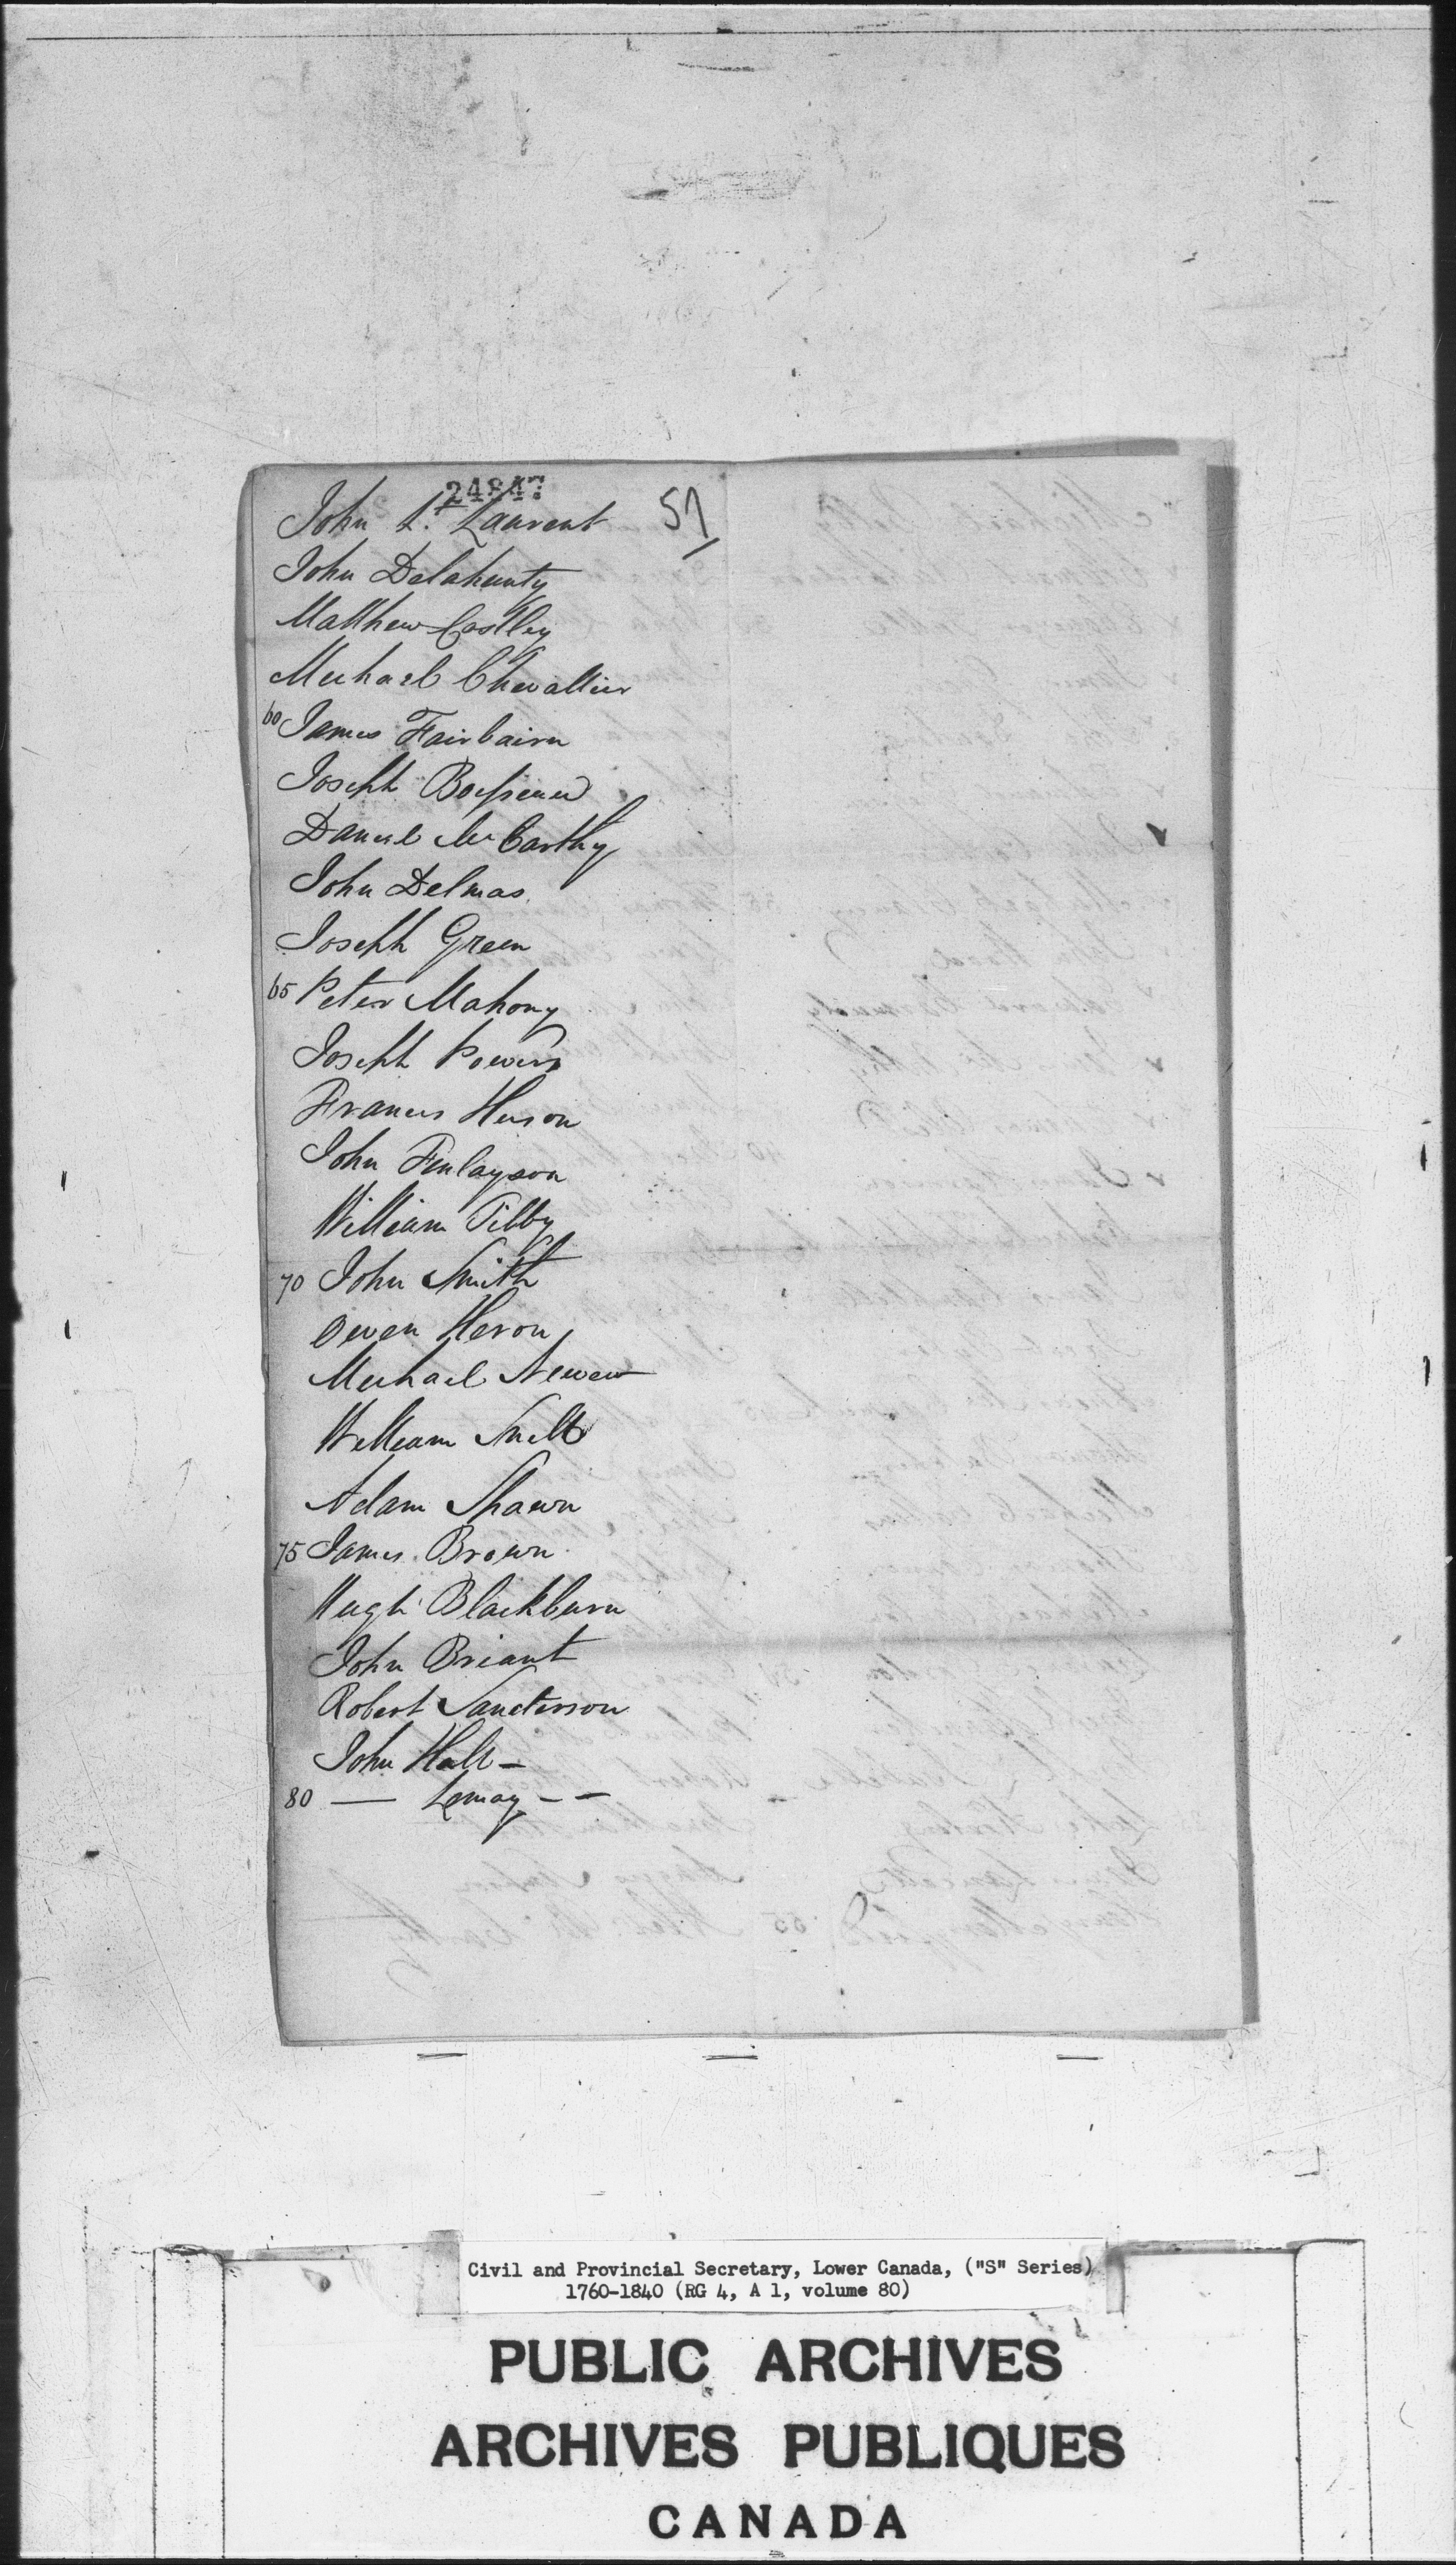 24847
John St. Laurent 57
John Delahunty
Matthew Costley
Michael Chevallier
60 James Fairbairn
Joseph
Daniel McCarthy
John Delmas
Joseph Green
65 Peter Mahony
Joseph Powers
Francis Huson
John Finlayson
William Tilby
70 John Smith
Owen Heron
Michael
William Snell
Adam Shawn
75 James Brown
Hugh Blackburn
John Briant
Robert Sanderson
John Hall —
80 — Lemay — —
Civil and Provincial Secretary, Lower Canada, ("S" Series)
1760-1840 (RG 4, A 1, volume 80)
PUBLIC ARCHIVES
ARCHIVES PUBLIQUES
CANADA